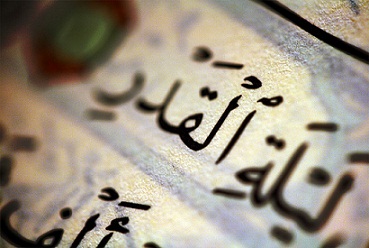 لَيْلَةِ ٱلْقَدْرِ
أَلْفِ